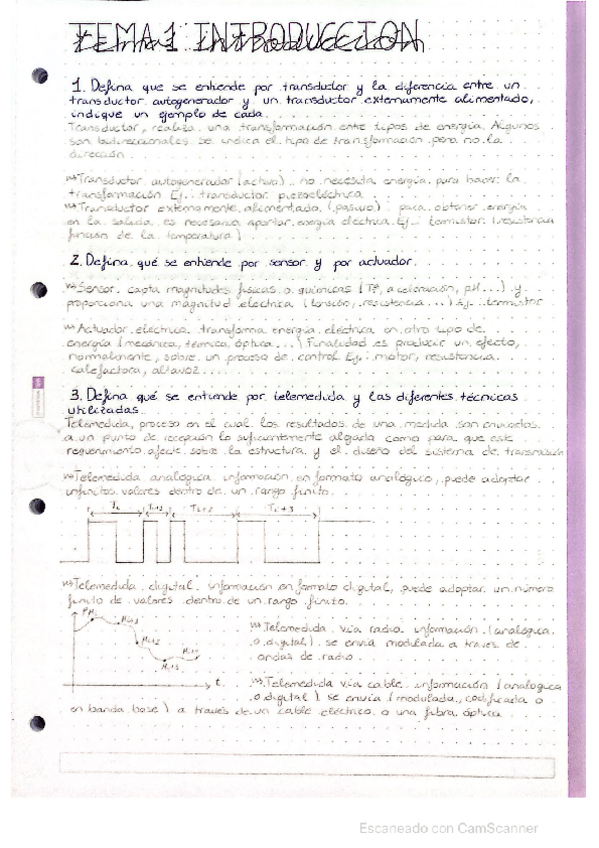 TEMA 1 INTRODUCCION
1. Defina que se entiende por transductor y la diferencia entre un
transductor autogenerador y un transductor externamente alimentado,
indique un ejemplo de cada.
Transductor, realiza una transformación entre tipos de energía. Algunos
son bidireccionales. Se indica el tipo de transformación pero no la
dirección.
Transductor autogenerador (activo): no necesita energía para hacer la
transformación Ej: transductor piezoeléctrico
Transductor externamente alimentado (pasivo): para obtener energía
en la salida es necesario aportar energía eléctrica Ej: termistor (resistencia
función de la temperatura)
2. Defina qué se entiende por sensor y por actuador.
Sensor, capta magnitudes físicas o químicas (Tª, aceleración, pH...) y
proporciona una magnitud eléctrica (tensión, resistencia...) Ej: termistor
Actuador eléctrico, transforma energía eléctrica en otro tipo de
energía (mecánica, térmica, óptica...) Finalidad es producir un efecto,
normalmente, sobre un proceso de control Ej: motor, resistencia
calefactora, altavoz...
3. Defina qué se entiende por telemedida y las diferentes técnicas
utilizadas.
Telemedida, proceso en el cual los resultados de una medida son enviados
a un punto de recepción lo suficientemente alejado como para que este
requerimiento afecte sobre la estructura y el diseño del sistema de transmisión
Telemedida analógica, información en formato analógico, puede adoptar
infinitos valores dentro de un rango finito.
Ti Ti+1 Ti+2 Ti+3
Telemedida digital, información en formato digital, puede adoptar un número
finito de valores dentro de un rango finito.
Mi+1
Mi+2
Mi+3
t
Telemedida vía radio, información (analógica
o digital) se envía modulada a través de
ondas de radio.
Telemedida vía cable, información (analógica
o digital) se envía (modulada, codificada o
en banda base) a través de un cable eléctrico o una fibra óptica
Escaneado con CamScanner